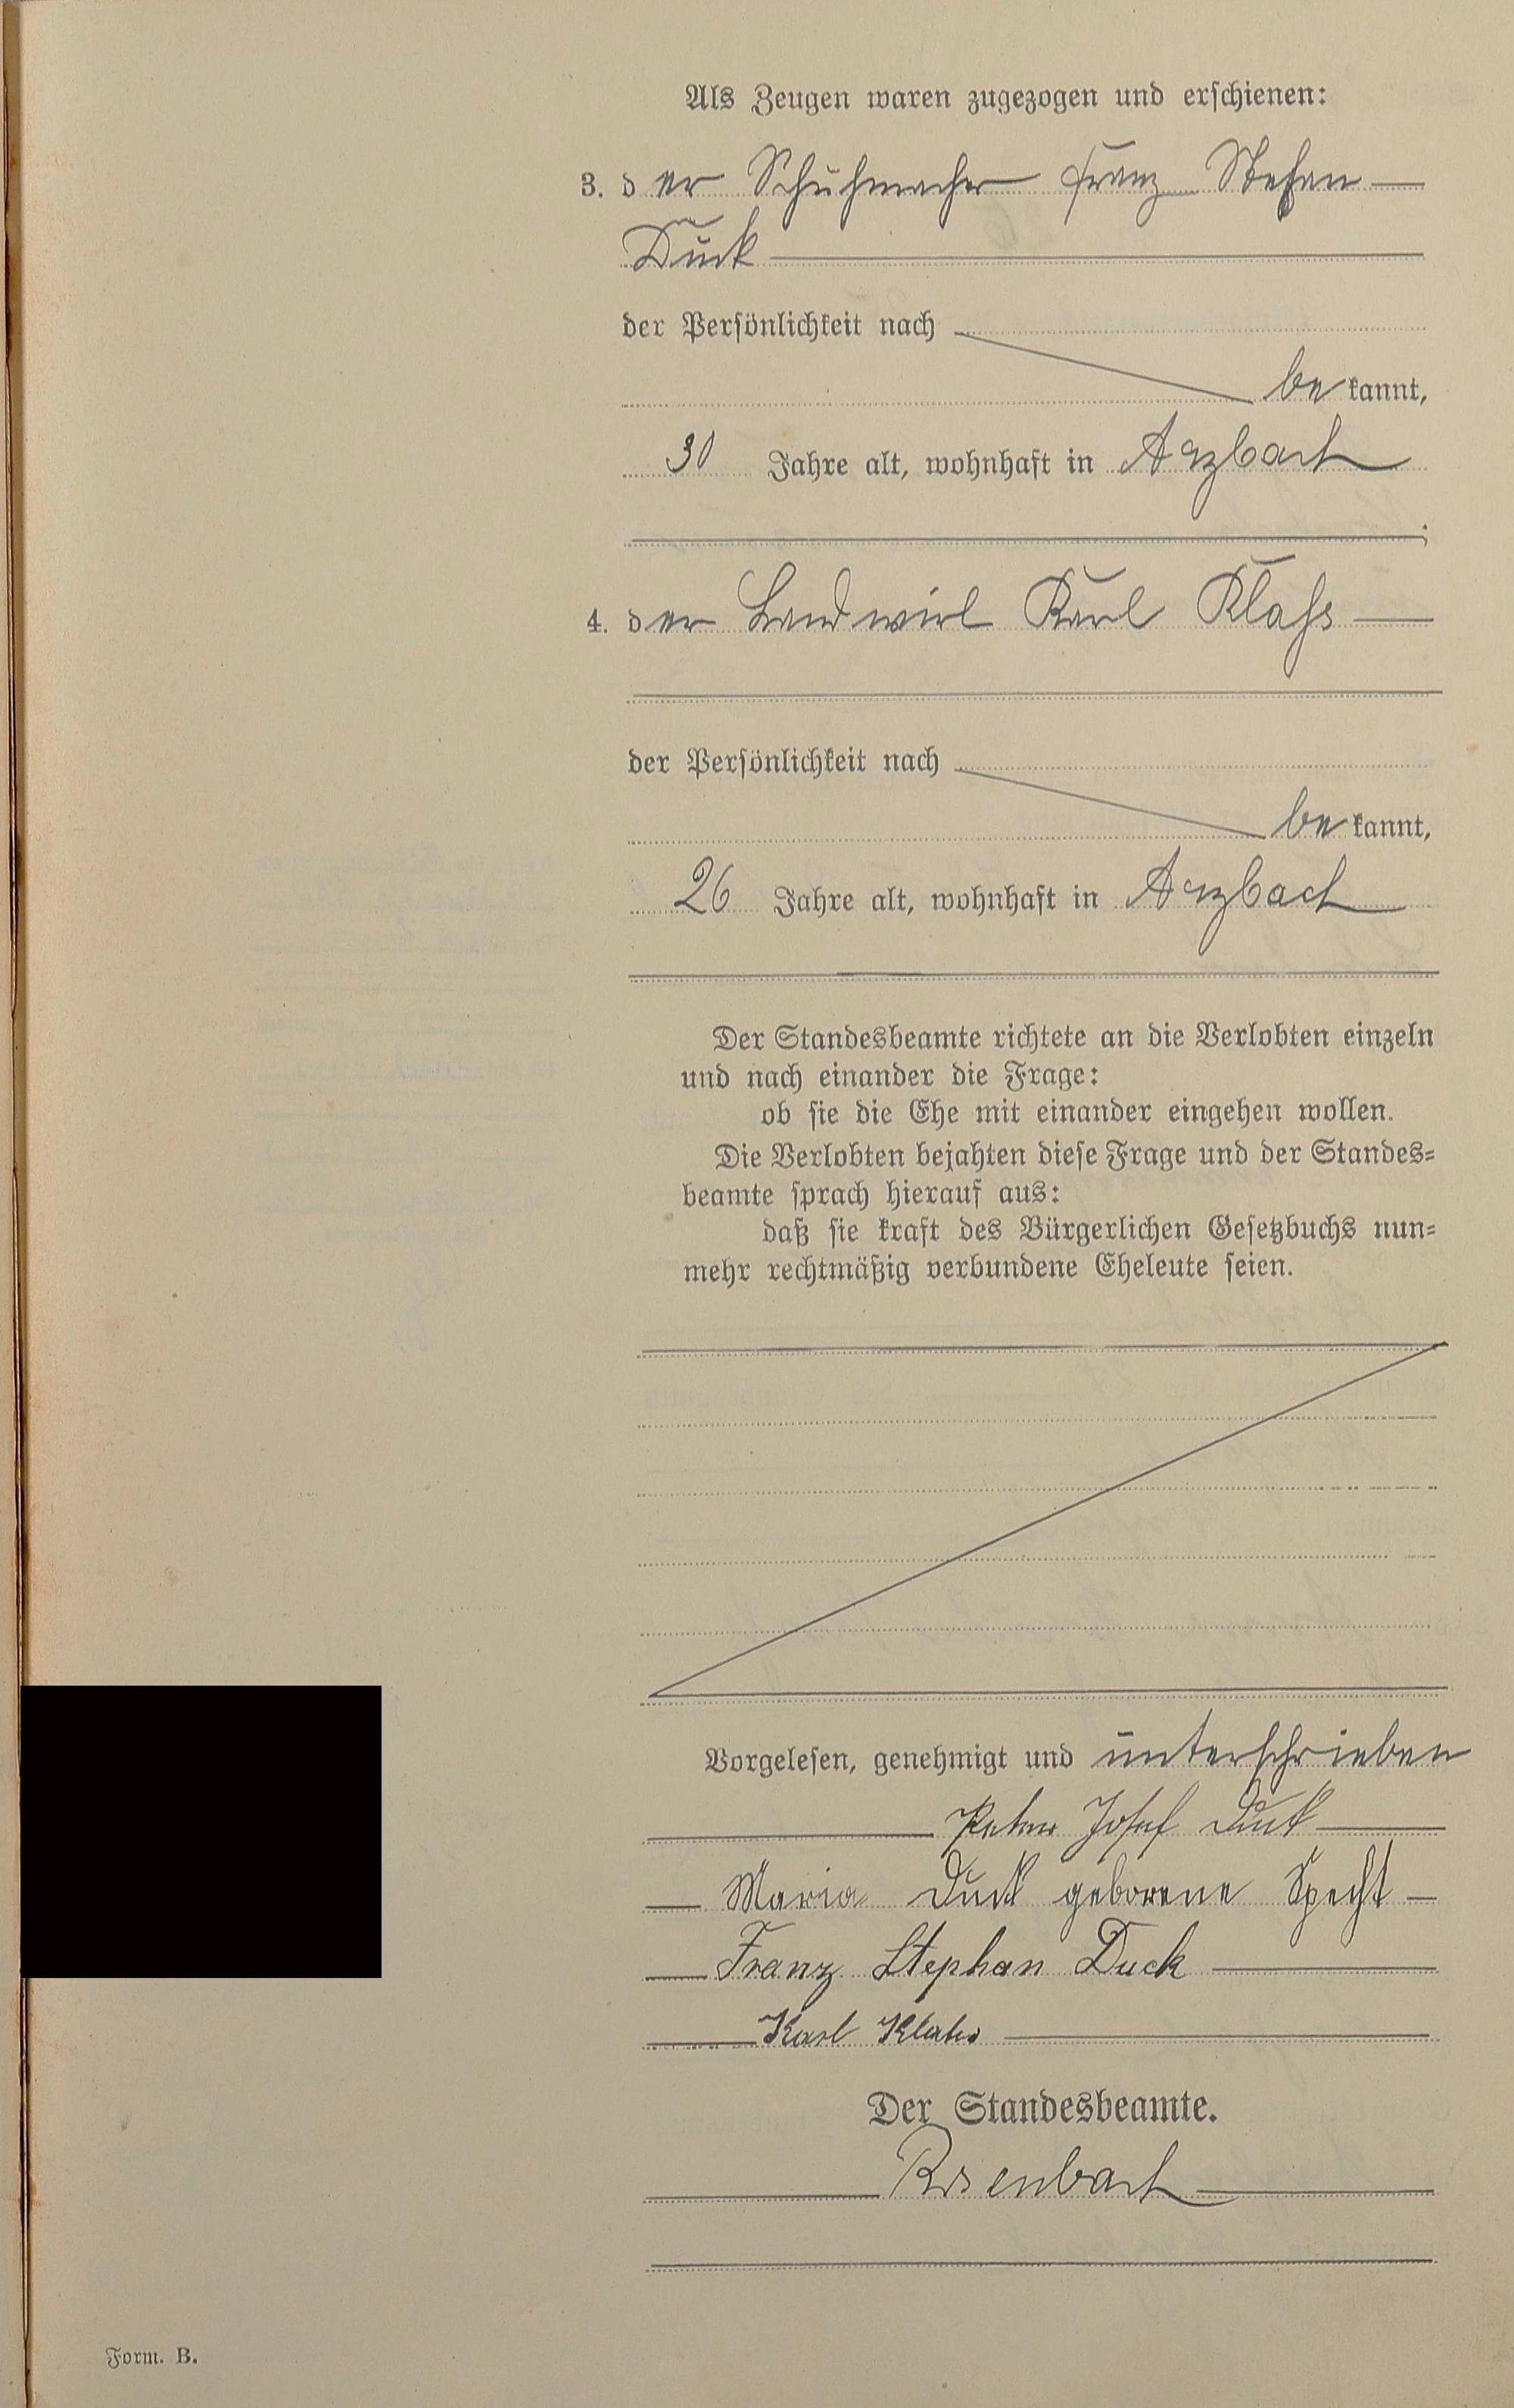 Als Zeugen waren zugezogen und erschienen:
3. der Schuhmacher Franz Stefan
Duck
der Persönlichkeit nach
bekannt,
30 Jahre alt, wohnhaft in Arzbach
;
4. der Landwirt Karl Klaß
der Persönlichkeit nach
bekannt,
26 Jahre alt, wohnhaft in Arzbach
Der Standesbeamte richtete an die Verlobten einzeln
und nach einander die Frage:
ob sie die Ehe mit einander eingehen wollen.
Die Verlobten bejahten diese Frage und der Standes=
beamte sprach hierauf aus:
daß sie kraft des Bürgerlichen Gesetzbuchs nun=
mehr rechtmäßig verbundene Eheleute seien.
Vorgelesen, genehmigt und unterschrieben
Peter Josef Duck
Maria Duck geborene Specht
Franz Stephan Duck
Karl
Der Standesbeamte.
Form. B.